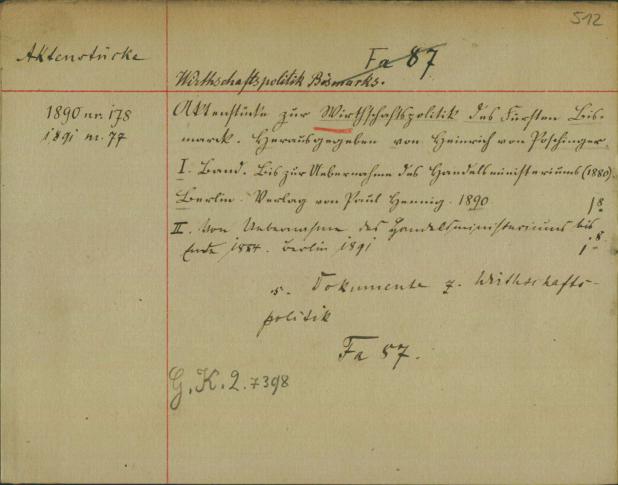 512
Aktenstücke
Fa 87
Wirthschaftspolitik Bismarcks.
1890 nr. 178
1891 nr. 77
Aktenstücke zur Wirthschaftspolitik des Fürsten Bis-
marck. Herausgegeben von Heinrich von Poschinger
I. Band. Bis zur Uebernahme des Handelsministeriums (1880).
Berlin. Verlag von Paul Hennig. 1890
1 8°
II. Von Uebernahme des Handelsministeriums bis
Ende 1884. Berlin 1891
1 8°
s. Dokumente z. Wirthschafts-
politik
Fa 87.
G. K. 2. 7398